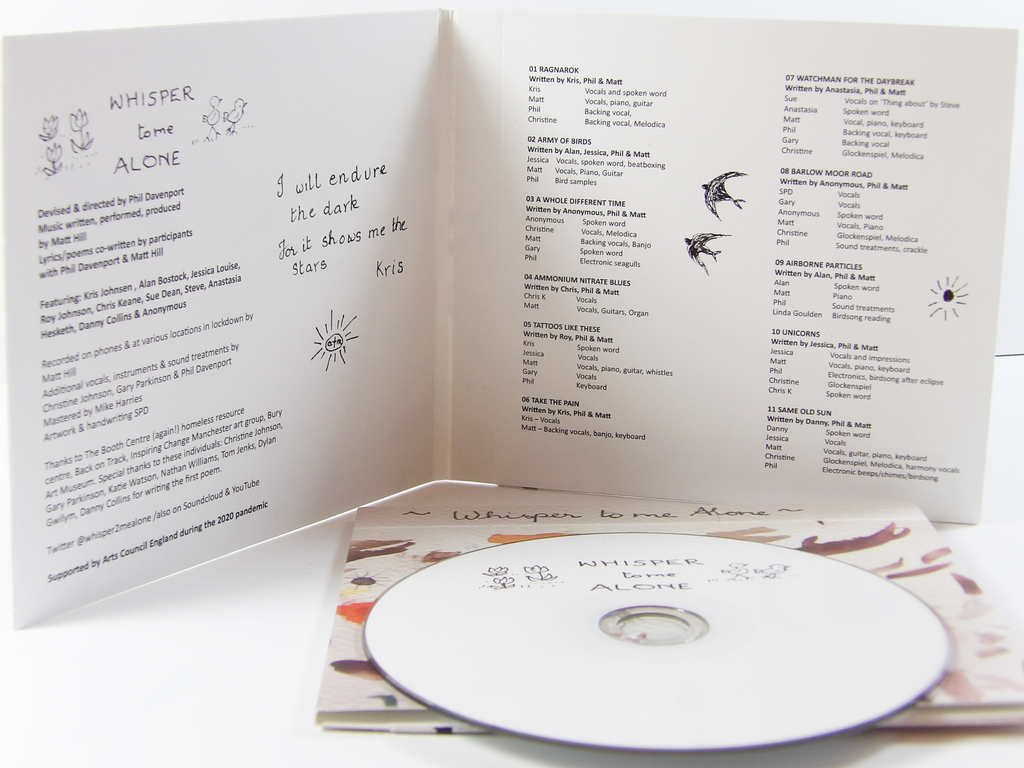 WHISPER
to me
ALONE
Devised & directed by Phil Davenport
Music written, performed, produced
by Matt Hill
Lyrics/poems co-written by participants
with Phil Davenport & Matt Hill
Featuring: Kris Johnsen , Alan Bostock, Jessica Louise,
Roy Johnson, Chris Keane, Sue Dean, Steve, Anastasia
Hesketh, Danny Collins & Anonymous
Recorded on phones & at various locations in lockdown by
Matt Hill
Additional vocals, instruments & sound treatments by
Christine Johnson, Gary Parkinson & Phil Davenport
Mastered by Mike Harries
Artwork & handwriting SPD
Thanks to The Booth Centre (again!) homeless resource
centre, Back on Track, Inspiring Change Manchester art group, Bury
Art Museum. Special thanks to these individuals: Christine Johnson,
Gary Parkinson, Katie Watson, Nathan Williams, Tom Jenks, Dylan
Gwilym, Danny Collins for writing the first poem.
Twitter @whisper2mealone /also on Soundcloud & YouTube
Supported by Arts Council England during the 2020 pandemic
I will endure
the dark
For it shows me the
stars Kris
atm
01 RAGNAROK
Written by Kris, Phil & Matt
Kris Vocals and spoken word
Matt Vocals, piano, guitar
Phil Backing vocal,
Christine Backing vocal, Melodica
02 ARMY OF BIRDS
Written by Alan, Jessica, Phil & Matt
Jessica Vocals, spoken word, beatboxing
Matt Vocals, Piano, Guitar
Phil Bird samples
03 A WHOLE DIFFERENT TIME
Written by Anonymous, Phil & Matt
Anonymous Spoken word
Christine Vocals, Melodica
Matt Backing vocals, Banjo
Gary Spoken word
Phil Electronic seagulls
04 AMMONIUM NITRATE BLUES
Written by Chris, Phil & Matt
Chris K Vocals
Matt Vocals, Guitars, Organ
05 TATTOOS LIKE THESE
Written by Roy, Phil & Matt
Kris Spoken word
Jessica Vocals
Matt Vocals, piano, guitar, whistles
Gary Vocals
Phil Keyboard
06 TAKE THE PAIN
Written by Kris, Phil & Matt
Kris – Vocals
Matt – Backing vocals, banjo, keyboard
07 WATCHMAN FOR THE DAYBREAK
Written by Anastasia, Phil & Matt
Sue Vocals on 'Thing about' by Steve
Anastasia Spoken word
Matt Vocal, piano, keyboard
Phil Backing vocal, keyboard
Gary Backing vocal
Christine Glockenspiel, Melodica
08 BARLOW MOOR ROAD
Written by Anonymous, Phil & Matt
SPD Vocals
Gary Vocals
Anonymous Spoken word
Matt Vocals, Piano
Christine Glockenspiel, Melodica
Phil Sound treatments, crackle
09 AIRBORNE PARTICLES
Written by Alan, Phil & Matt
Alan Spoken word
Matt Piano
Phil Sound treatments
Linda Goulden Birdsong reading
10 UNICORNS
Written by Jessica, Phil & Matt
Jessica Vocals and impressions
Matt Vocals, piano, keyboard
Phil Electronics, birdsong after eclipse
Christine Glockenspiel
Chris K Spoken word
11 SAME OLD SUN
Written by Danny, Phil & Matt
Danny Spoken word
Jessica Vocals
Matt Vocals, guitar, piano, keyboard
Christine Glockenspiel, Melodica, harmony vocals
Phil Electronic beeps/chimes/birdsong
~ Whisper to me Alone ~
WHISPER
to me
ALONE